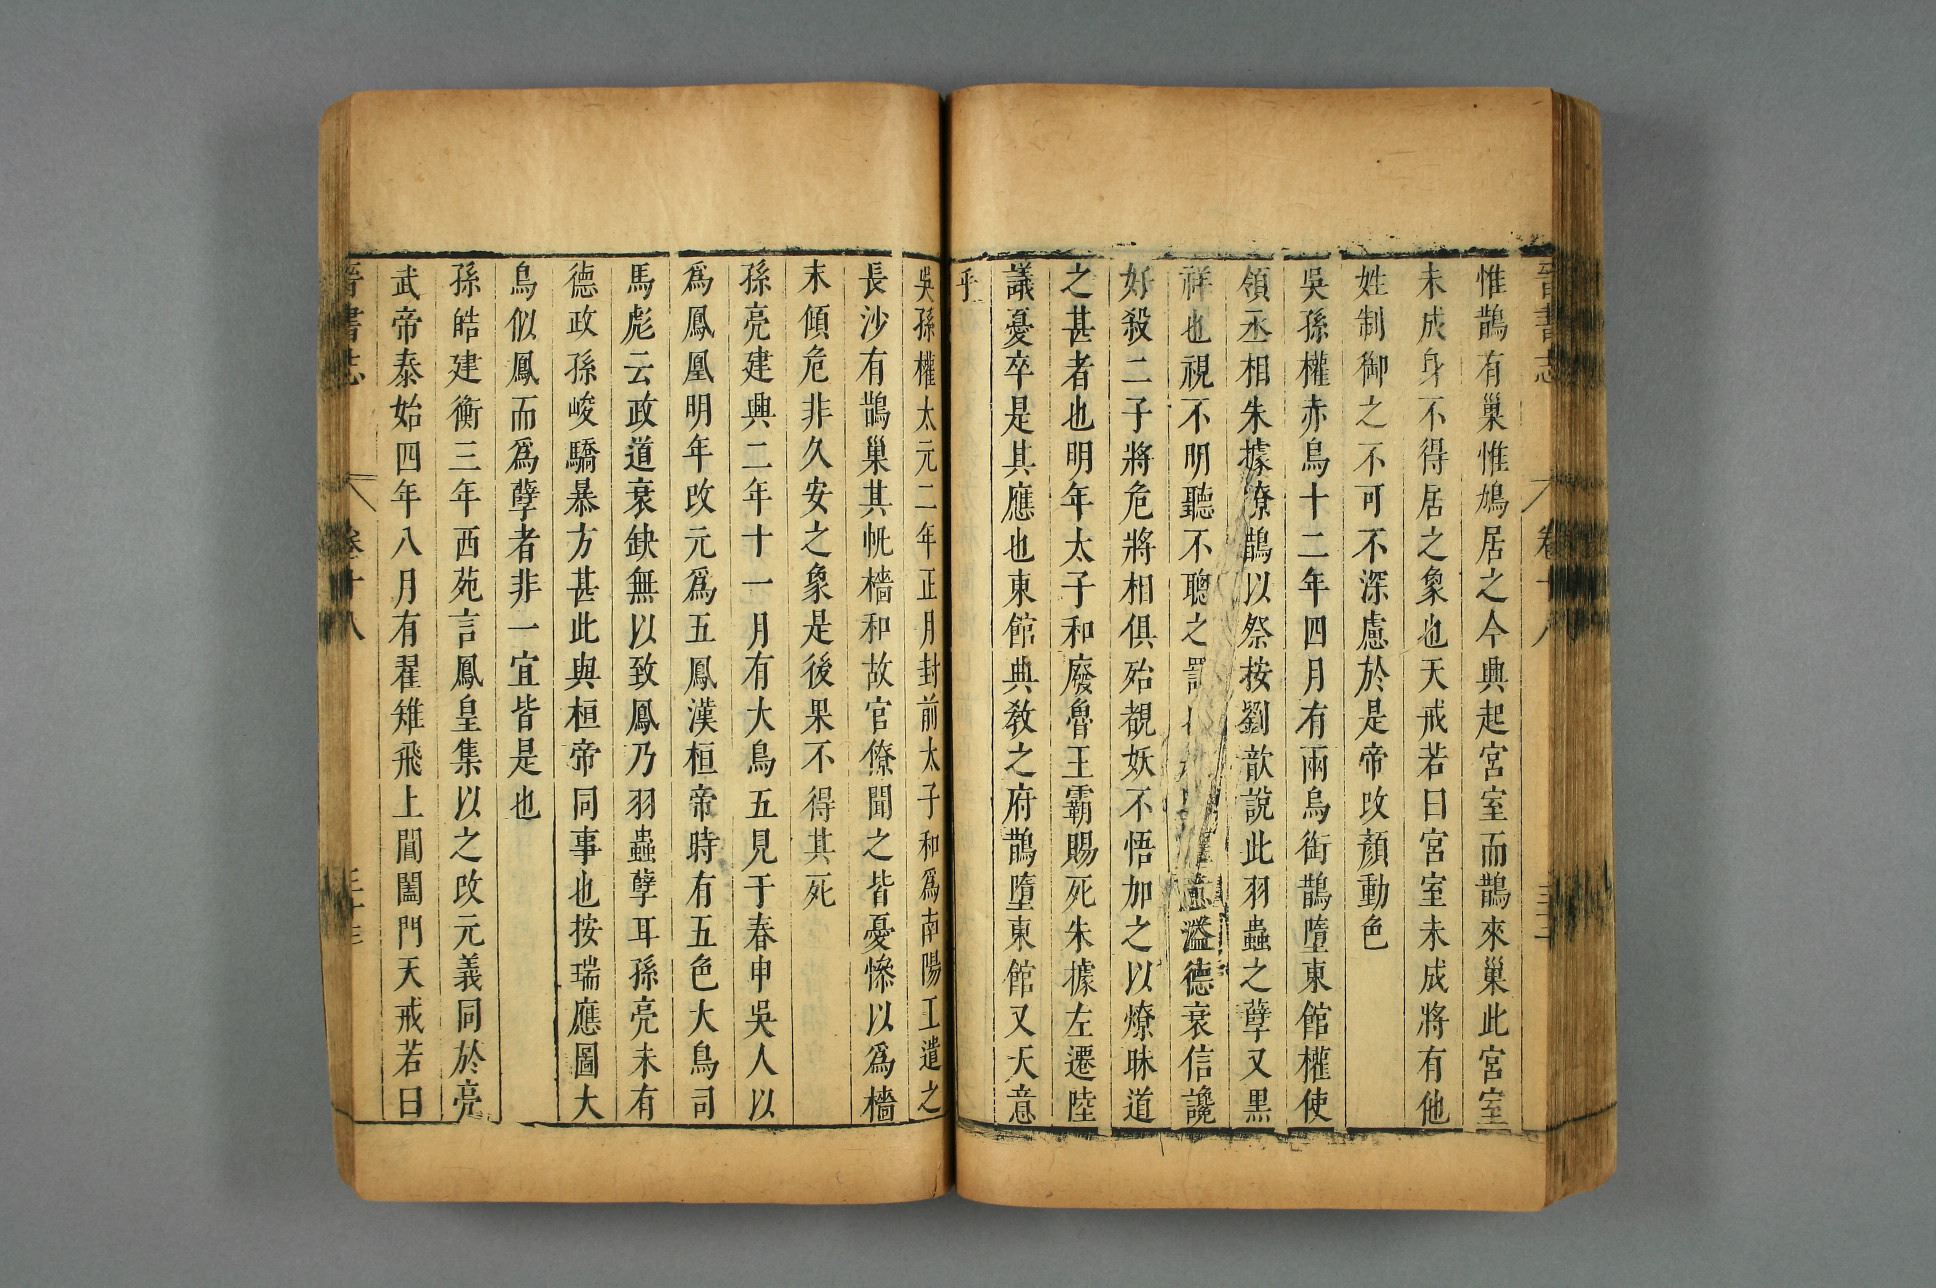 晉書志 卷十八
惟鵲有巢惟鳩居之今興起宮室而鵲來巢此宮室
未成身不得居之象也天戒若曰宮室未成將有他
姓制御之不可不深慮於是帝改顏動色
吳孫權赤烏十二年四月有兩烏銜鵲墮東館權使
領丞相朱據燎鵲以祭按劉歆說此羽蟲之孽又黑
祥也視不明聽不聰之罰也 意溢德衰信讒
好殺二子將危將相俱殆覩妖不悟加之以燎昧道
之甚者也明年太子和廢魯王霸賜死朱據左遷陸
議憂卒是其應也東館典教之府鵲墮東館又天意
乎
吳孫權太元二年正月封前太子和爲南陽王遣之
長沙有鵲巢其帆檣和故官僚聞之皆憂慘以爲檣
末傾危非久安之象是後果不得其死
孫亮建興二年十一月有大鳥五見于春申吳人以
爲鳳凰明年改元爲五鳳漢桓帝時有五色大鳥司
馬彪云政道衰缺無以致鳳乃羽蟲孽耳孫亮未有
德政孫峻驕暴方甚此與桓帝同事也按瑞應圖大
鳥似鳳而爲孽者非一宜皆是也
孫皓建衡三年西苑言鳳皇集以之改元義同於亮
武帝泰始四年八月有翟雉飛上閶闔門天戒若曰
晉書志 卷十八